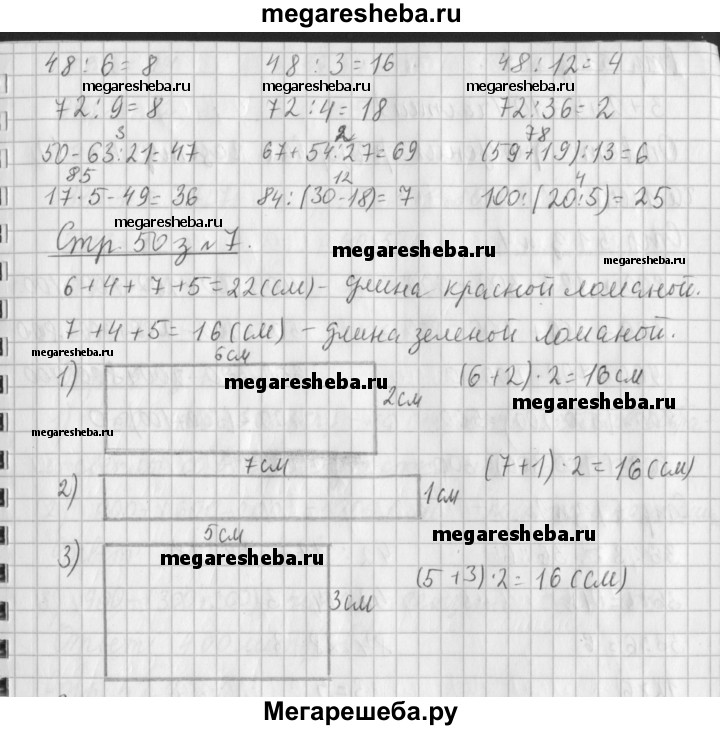 megaresheba.ru
48 : 6 = 8 48 : 3 = 16 48 : 12 = 4
megaresheba.ru megaresheba.ru megaresheba.ru
72 : 9 = 8 72 : 4 = 18 72 : 36 = 2
3 2 78
50 - 63 : 21 = 47 67 + 54 : 27 = 69 (59 + 19) : 13 = 6
85 12 4
17 · 5 - 49 = 36 84 : (30 - 18) = 7 100 : (20 : 5) = 25
megaresheba.ru
Стр. 50 з №7.
megaresheba.ru megaresheba.ru
6 + 4 + 7 + 5 = 22 (см) - длина красной ломаной.
7 + 4 + 5 = 16 (см) - длина зеленой ломаной.
megaresheba.ru 6см
1) megaresheba.ru 2см (6 + 2) · 2 = 16 см
megaresheba.ru
megaresheba.ru
7см (7 + 1) · 2 = 16 (см)
2) 1см
5см megaresheba.ru
3) megaresheba.ru (5 + 3) · 2 = 16 (см)
3см
Мегарешеба.ру